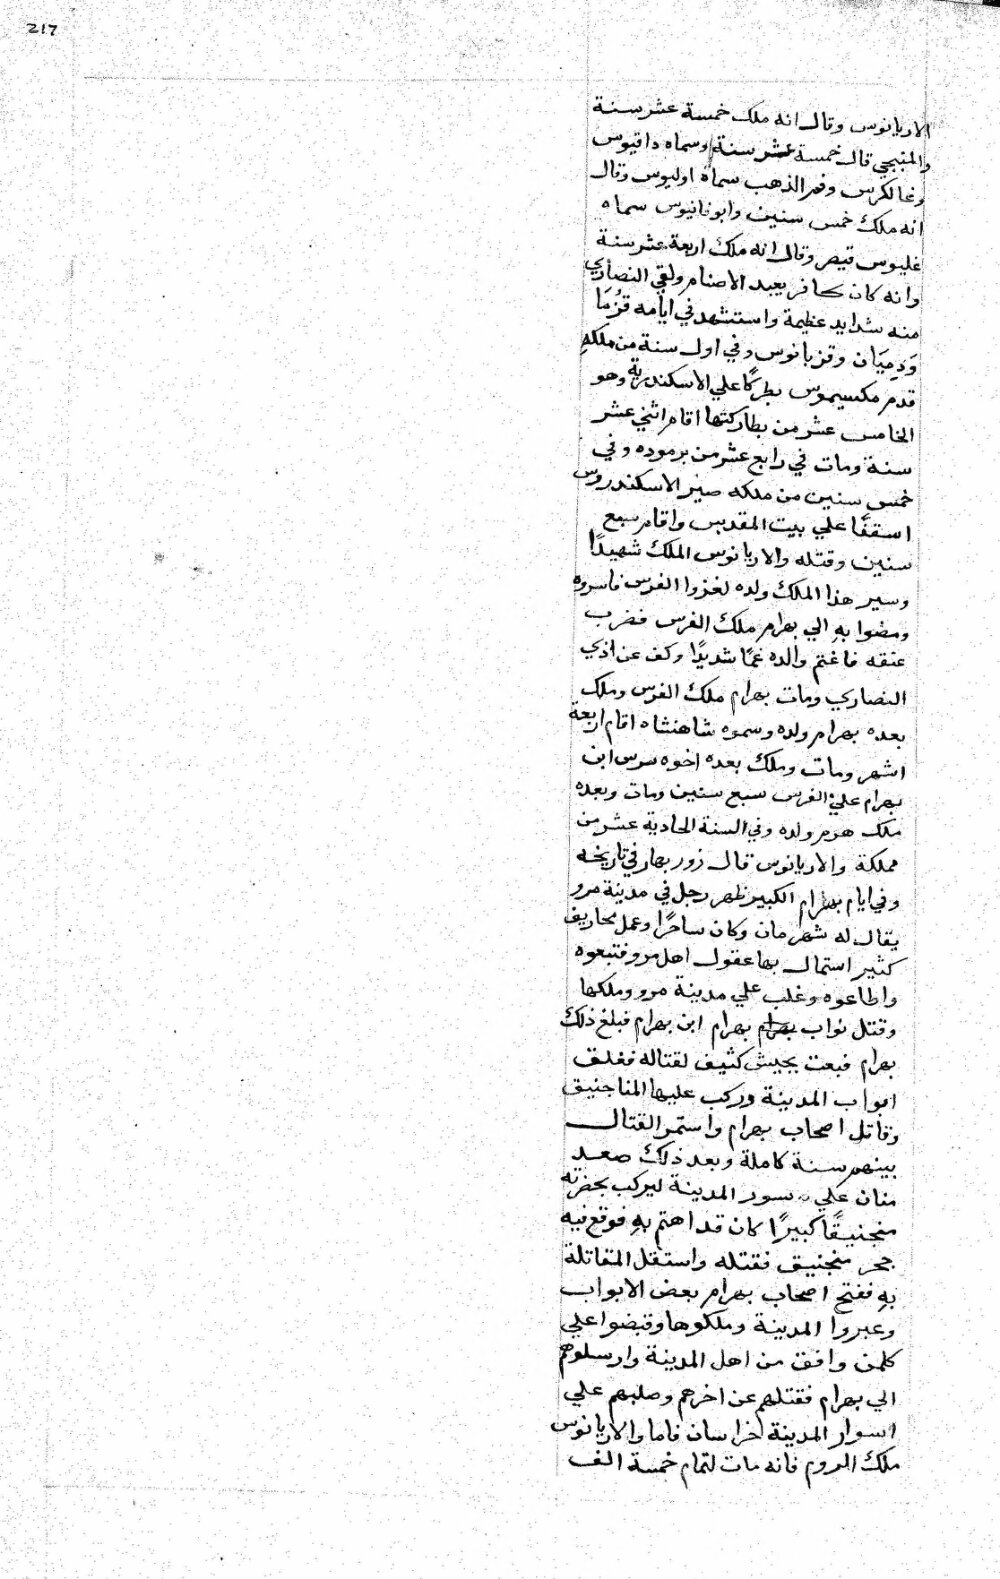 217
الاريانوس وقال انه ملك خمسة عشر سنة
والمنبجي قال خمسة عشر سنة وسماه داقيوس
وغالكرس وفم الذهب سماه اوليوس وقال
انه ملك خمس سنين وابوفانيوس سماه
غليوس قيصر وقال انه ملك اربعة عشر سنة
وانه كان كافر يعبد الاصنام ولقي النصاري
منه شدايد عظيمة واستشهد في ايامه قزمَا
وَدِميَان وقزبانوس وفي اول سنة من ملكهِ
قدم مكسيموس بطركًا علي الاسكندرية وهو
الخامس عشر من بطاركتها اقام اثني عشر
سنة ومات في رابع عشر من برموده وفي
خمس سنين من ملكه صير الاسكندروس
اسقفًا علي بيت المقدس واقام سبع
سنين وقتله والاريانوس الملك شهيدًا
وسير هذا الملك ولده لغزوا الفرس فاسروه
ومضوا بهِ الي بهرام ملك الفرس فضرب
عنقه فاغتم والده غمًا شديدًا وكف عن اذي
النصاري ومات بهرام ملك الفرس وملك
بعده بهرام ولده وسموه شاهنشاه اقام اربعة
اشهر ومات وملك بعده اخوه سرس ابن
بهرام علي الفرس سبع سنين ومات وبعده
ملك هرمز ولده وفي السنة الحادية عشر من
مملكة والاريانوس قال زوربهار في تاريخه
وفي ايام بهرام الكبير ظهر رجل في مدينة مرو
يقال له شهرمان وكان ساحرًا وعمل مخاريف
كثير استمال بها عقول اهل مرو فتبعوه
واطاعوه وغلب علي مدينة مرو وملكها
وقتل نواب بهرام بهرام ابن بهرام فبلغ ذلك
بهرام فبعت بجيش كثيف لقتاله فغلق
ابواب المدينة وركب عليها المناجنيق
وقاتل اصحاب بهرام واستمر القتال
بينهم سنة كاملة وبعد ذلك صعد
منان علي سور المدينة ليركب بحضرته
منجنيقًا كبيرًا كان قد اهتم بهِ فوقع فيه
حجر منجنيق فقتله واستقل المقاتلة
بهِ ففتح اصحاب بهرام بعض الابواب
وعبروا المدينة وملكوها وقبضوا علي
كلمن وافق من اهل المدينة وارسلوهم
الي بهرام فقتلهم عن اخرهم وصلبهم علي
اسوار المدينة اخراسان فاما والاريانوس
ملك الروم فانه مات لتمام خمسة الف